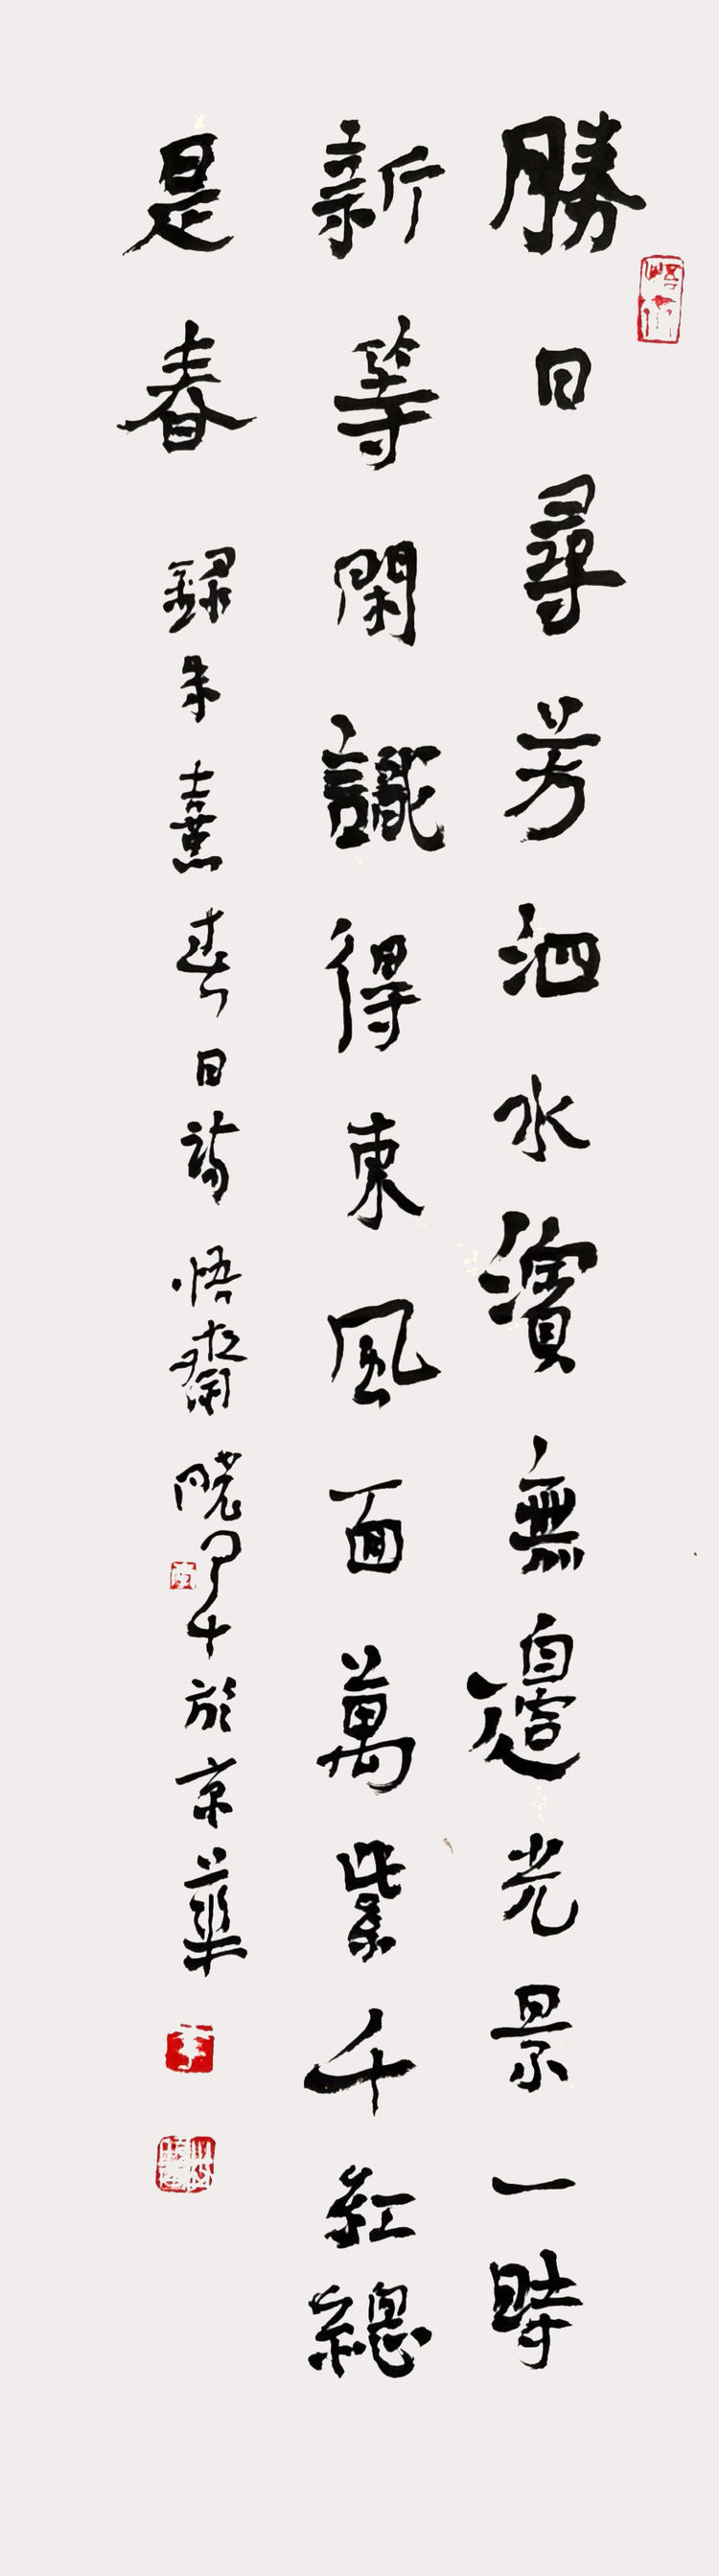 勝日尋芳泗水濱無邊光景一時
新等閑識得東風面萬紫千紅總
是春
錄朱熹春日詩悟齋曉軍於京華